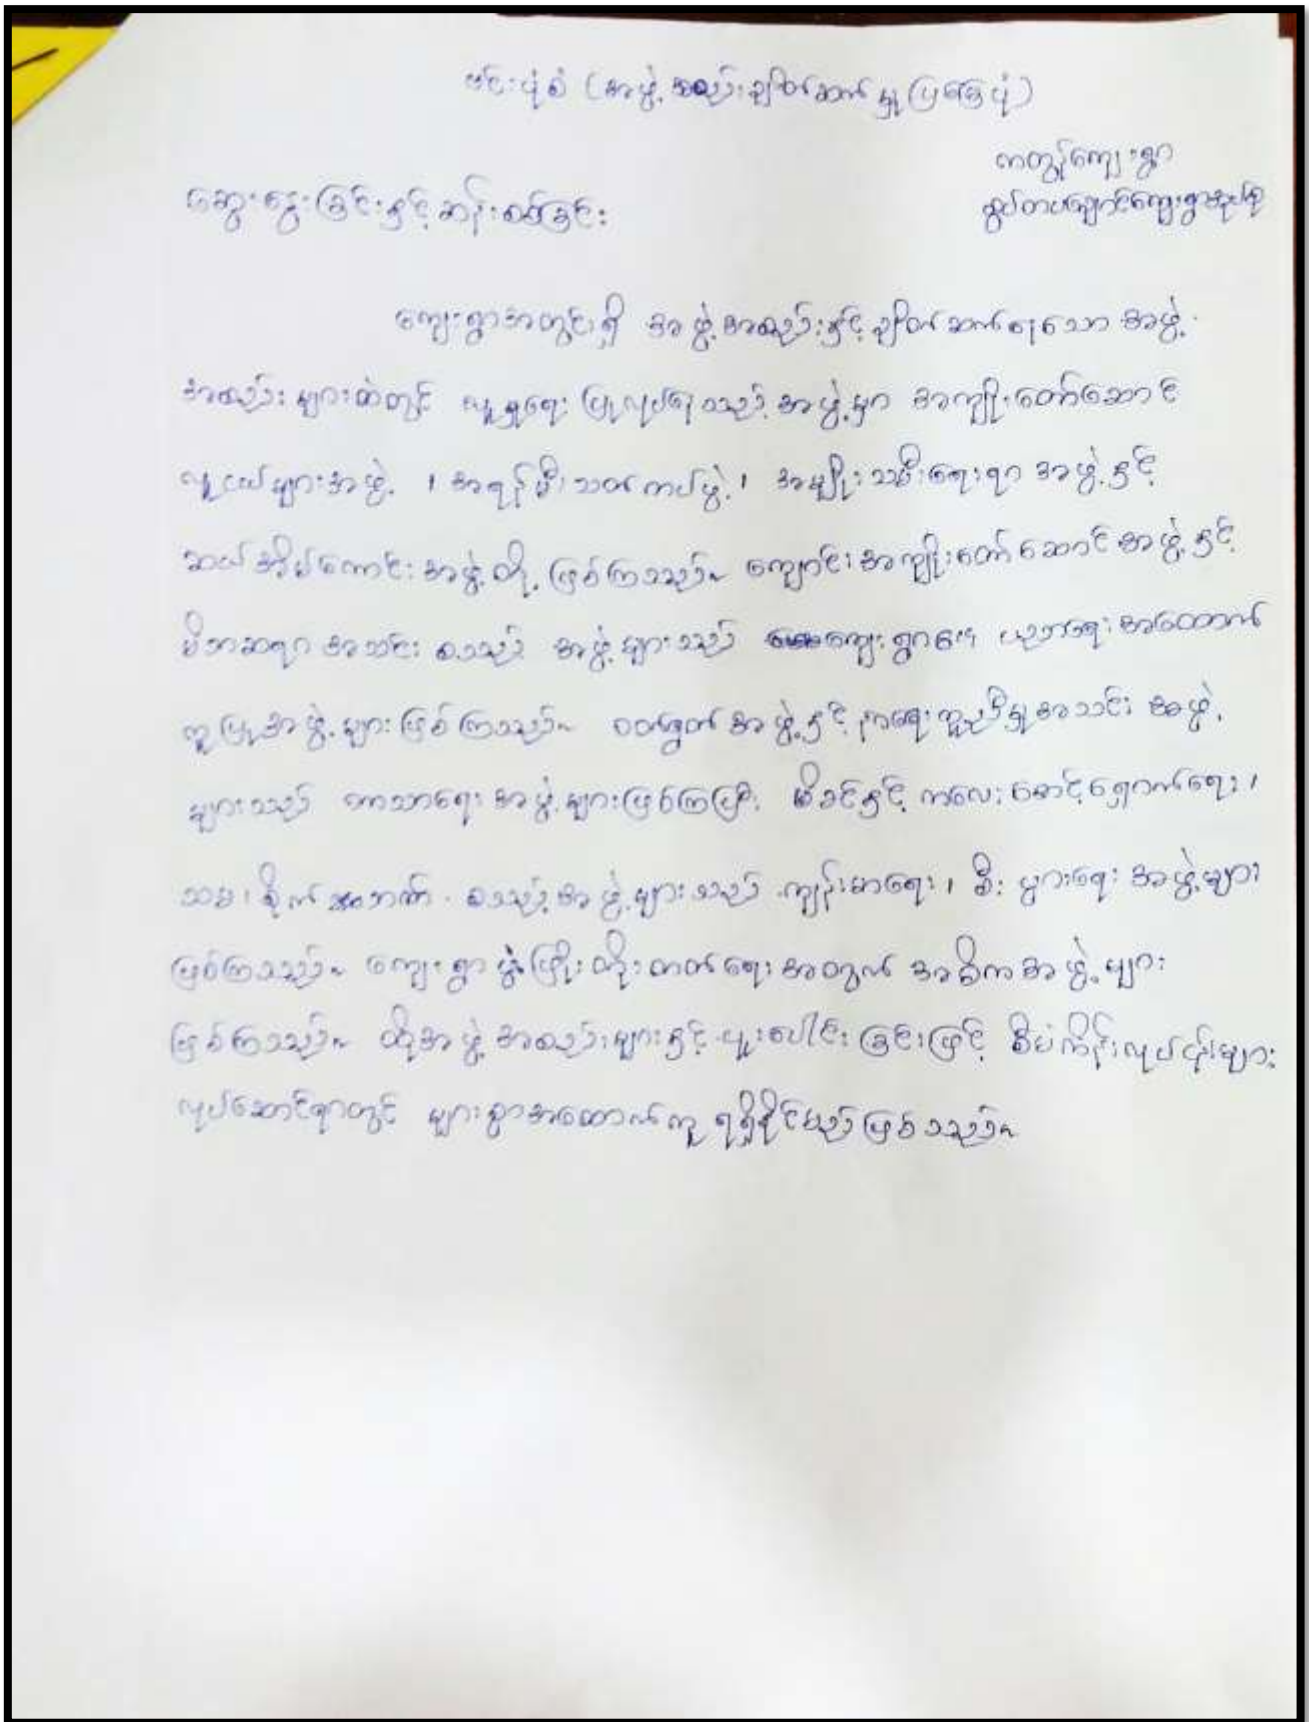 ဗင်းပုံစံ (အဖွဲ့အစည်းချိတ်ဆက်မှုပြမြေပုံ)
ကတွန်ကျေးရွာ
ဆွေးနွေးခြင်းနှင့်ဆန်းစစ်ခြင်း
ကျေးရွာအတွင်းရှိ အဖွဲ့အစည်းနှင့်ချိတ်ဆက်နေသော အဖွဲ့
အစည်းများထဲတွင် လူမှုရေး ပြုလုပ်နေသည့်အဖွဲ့မှာ အကျိုးတော်ဆောင်
လူငယ်များအဖွဲ့ ၊ အရန်မီးသတ်တပ်ဖွဲ့၊ အမျိုးသမီးရေးရာ အဖွဲ့နှင့်
ဆယ်အိမ်ခေါင်းအဖွဲ့တို့ ဖြစ်ကြသည်။ ကျောင်းအကျိုးတော်ဆောင်အဖွဲ့နှင့်
မိဘဆရာအသင်း စသည့် အဖွဲ့များသည် ကျေးရွာ၏ ပညာရေးအထောက်
ကူပြုအဖွဲ့များဖြစ်ကြသည်။ ဝတ်ရွတ်အဖွဲ့နှင့် နာရေးကူညီမှုအသင်း အဖွဲ့
များသည် ဘာသာရေးအဖွဲ့များဖြစ်ကြပြီး မိခင်နှင့်ကလေးစောင့်ရှောက်ရေး၊
သမ၊ စိုက် ဘဏ် စသည့်အဖွဲ့များသည် ကျန်းမာရေး၊ စီးပွားရေးအဖွဲ့များ
ဖြစ်ကြသည်။ ကျေးရွာဖွံ့ဖြိုးတိုးတက်ရေးအတွက် အဓိကအဖွဲ့များ
ဖြစ်ကြသည်။ ထိုအဖွဲ့အစည်းများနှင့် ပူးပေါင်းခြင်းဖြင့် စီမံကိန်းလုပ်ငန်းများ
လုပ်ဆောင်ရာတွင် များစွာအထောက်ကူ ရရှိနိုင်မည်ဖြစ်သည်။